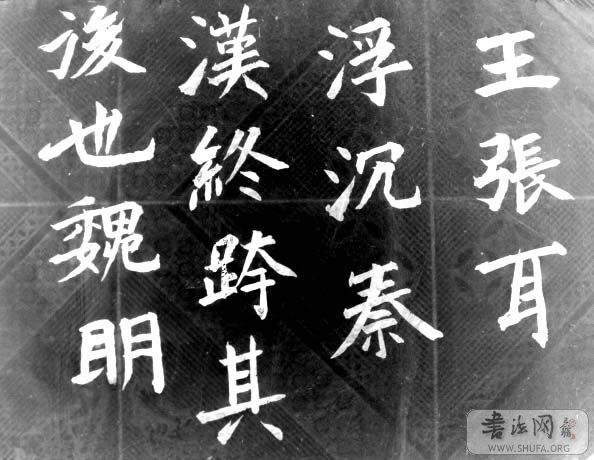 王張耳
浮沉秦
漢終跨其
後也魏明
書法网
WWW.SHUFA.ORG